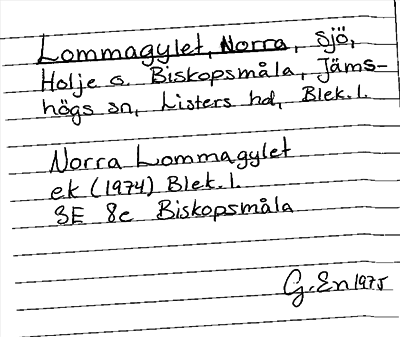 Lommagylet, Norra, sjö,
Holje o. Biskopsmåla, Jäms-
högs sn, Listers hd, Blek. l.
Norra Lommagylet
ek (1974) Blek. l.
3E 8e Biskopsmåla
G. En 1975